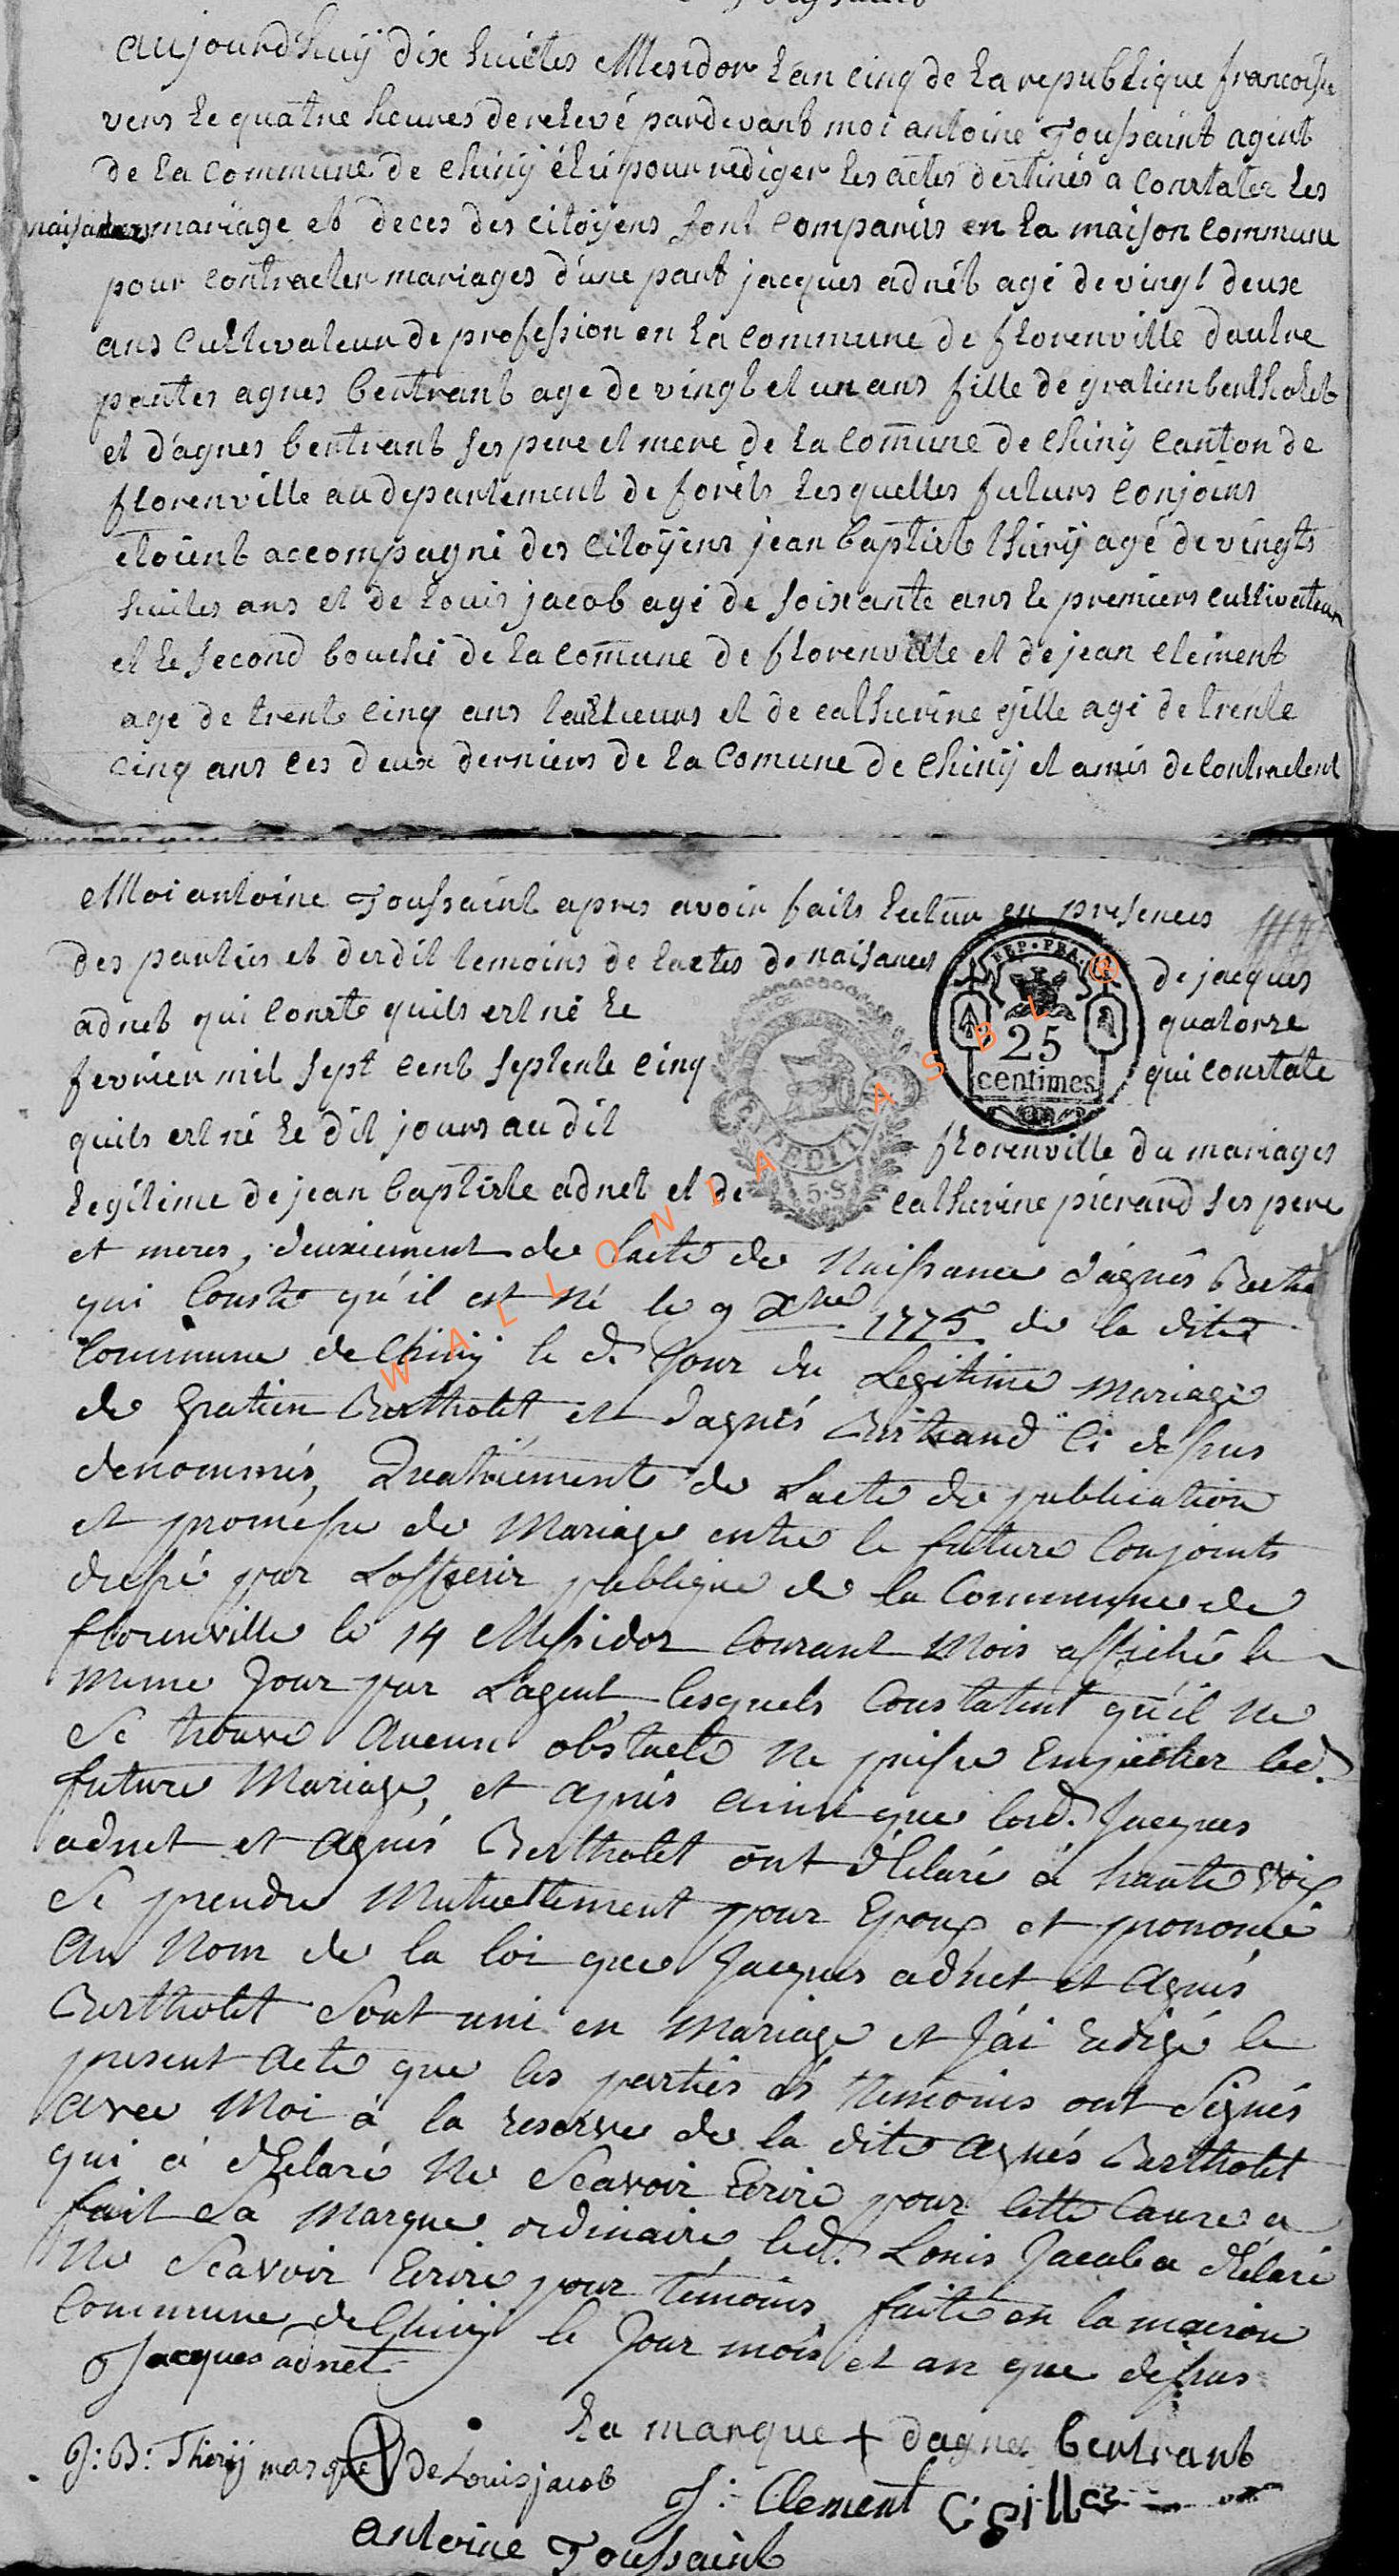 aujourdhuÿ dix huictes Mesidor lan cinq de la republique francoise
vers le quatre heures de relevé pardevant moi antoine Toussaint agint
de la commune de chinÿ élu pour rediger les actes destinés a constater les
naisances mariage et deces des citoÿens sont comparus en la maison commune
pour contracter mariages d'une part jacques adnet agé de vingt deux
ans cultivateur de profession en la commune de florenville dautre
partes agnes bertrant age de vingt et un ans fille de gratien bertholet
et d'agnes bertrant ses pere et mere de la comune de chinÿ canton de
florenville au departement de forêts lesquelles futurs conjoins
etoient accompagné des citoÿens jean baptiste thirÿ agé de vingts
huites ans et de louis jacob agé de soixante ans le premiers cultivateur
et le second bouché de la comune de florenville et de jean clement
age de trente cinq ans tailleurs et de catherine gille agé de trente
cinq ans les deux derniers de la comune de chinÿ et amis de contractent
Moi antoine Toussaint apres avoir faits lectur en presences
des parties et desdit temoins de lactes de naisances de jacques
adnet qui conste quils est né le quatorze
fevrier mil sept cent septente cinq qui constate
quils est né le dit jours au dit florenville du mariages
legitime de jean baptiste adnet et de catherine pierard ses pere
et meres, deuxiement de lacte de Naissance d'agnés Berth
qui Conste qu'il est né le 9 Xbre 1775 de la dite
Commune de Chinÿ le d. Jour du Legitime Mariage
de Gratien Bertholet et d'agnés Bertrand Ci dessus
denommés, Quatriement de Lacte de publication
et promesse de Mariage entre le future Conjoints
dressé par Lofficier publique de la Commune de
florenville le 14 Messidor Courant Mois affiché le
meme Jour par L'agent lesquels Constatent qu'il ne
se trouve Aucun obstacle ne puisse Empecher led.
future Mariage, et apres ainsi que lesd. Jacques
adnet et Agnés Bertholet ont déclaré à haute voix
se prendre Mutuellement pour Epoux et prononcé
Au Nom de la loi que Jacques adnet et Agnés
Bertholet Sont uni en Mariage et J'ai redigé le
present Acte que les parties et temoins ont Signés
avec Moi à la reserve de la dite Agnés Bertholet
qui à déclaré Ne Scavoir Ecrire pour Cette Cause a
fait Sa Marque ordinaire, led. Louis Jacob a déclaré
Ne Scavoir Ecrire pour témoins, faite en la maison
Commune de Chinÿ le Jour mois et an que dessus
Jacques adnet
La marque + dagnes bertrant
J: B: Thirÿ marque de Louis jacob
J: Clement C gilles
antoine Toussaint
REP. FRA.
25
centimes
WALLONIA ASBL ®